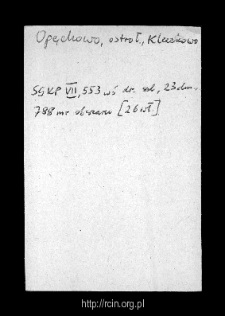 Opęchowo, ostroł., Kleczkowo
SGKP VII, 553 wś dr. szl., 23 dm.
788 mr. obszaru [26 wł]
http://rcin.org.pl